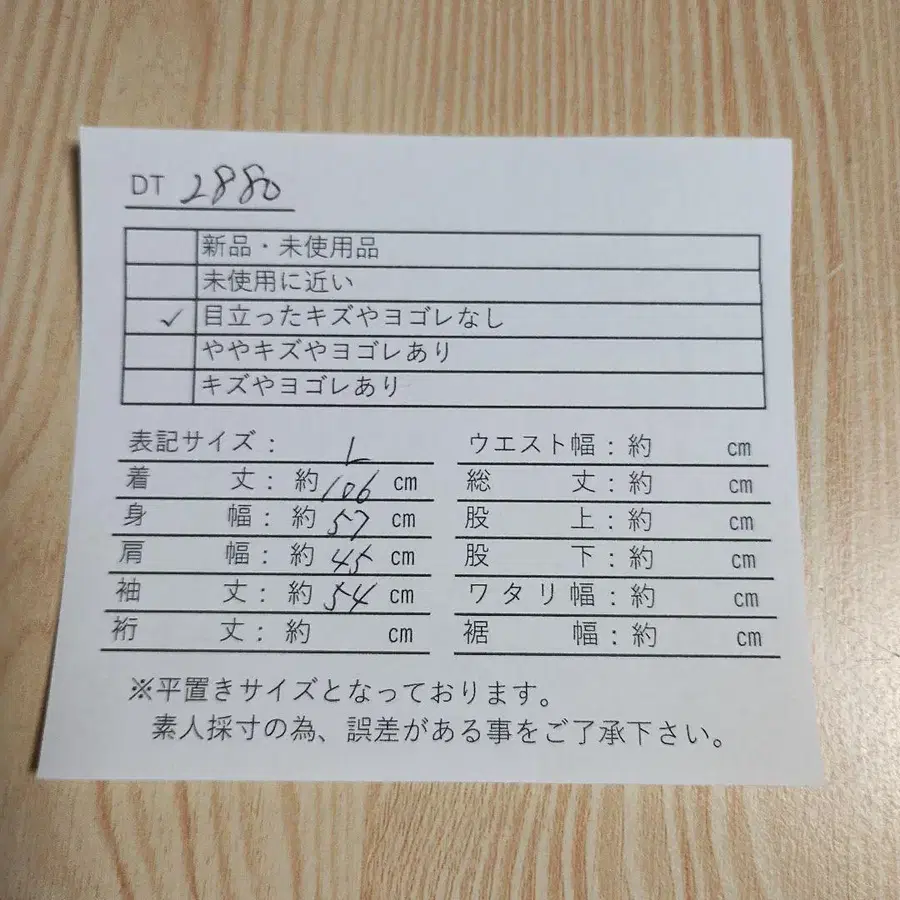 DT 2880
新品・未使用品
未使用に近い
✓ 目立ったキズやヨゴレなし
ややキズやヨゴレあり
キズやヨゴレあり
表記サイズ: L
着丈:約106cm
身幅:約57cm
肩幅:約45cm
袖丈:約54cm
裄丈:約 cm
ウエスト幅:約 cm
総丈:約 cm
股上:約 cm
股下:約 cm
ワタリ幅:約 cm
裾幅:約 cm
※平置きサイズとなっております。
素人採寸の為、誤差がある事をご了承下さい。